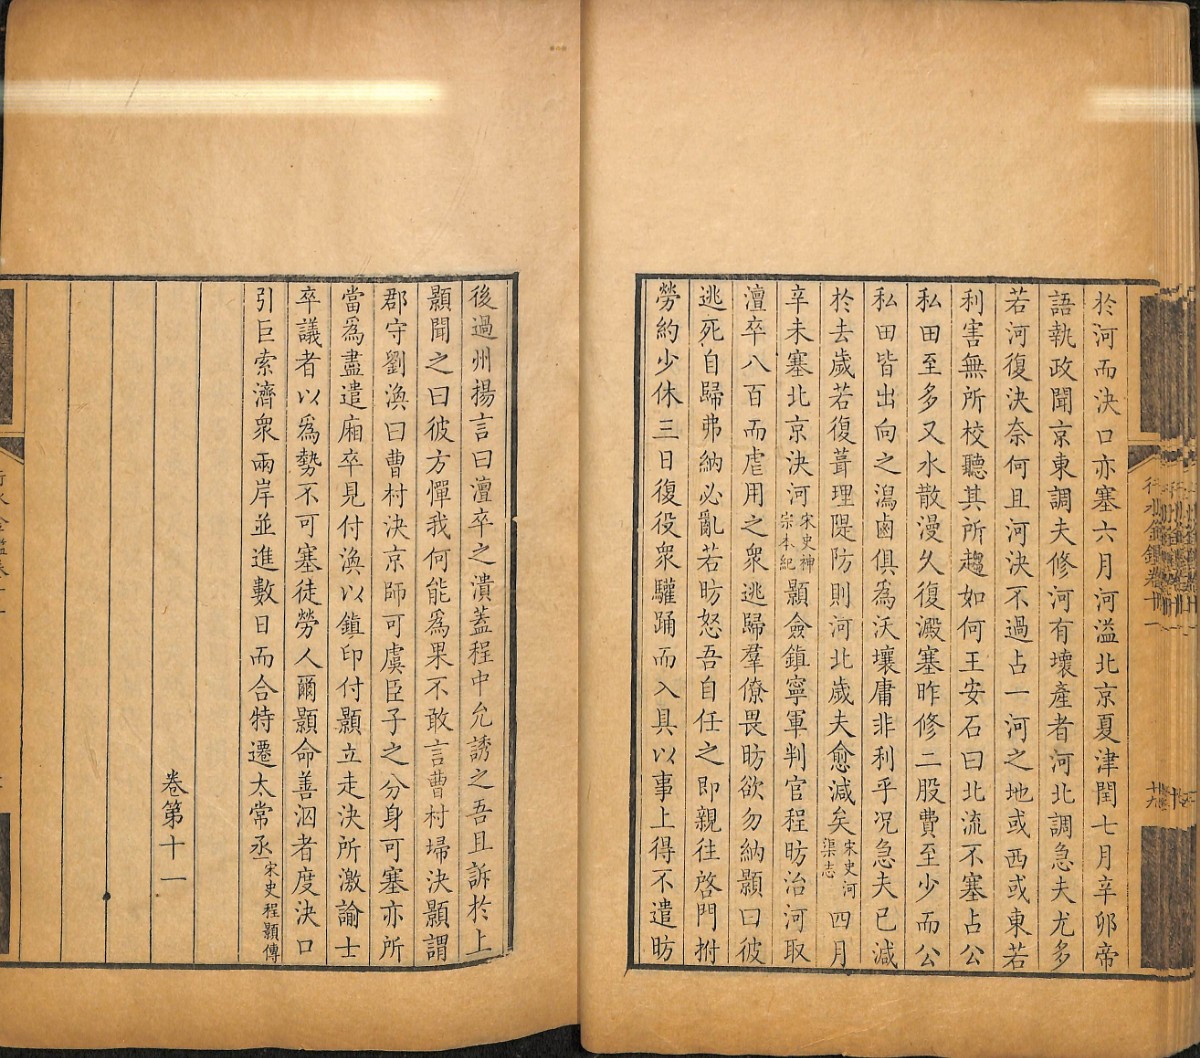 於河而決口亦塞六月河溢北京夏津閏七月辛卯帝
語執政聞京東調夫修河有壞產者河北調急夫尤多
若河復決奈何且河決不過占一河之地或西或東若
利害無所校聽其所趨如何王安石曰北流不塞占公
私田至多又水散漫久復澱塞昨修二股費至少而公
私田皆出向之瀉鹵俱爲沃壤庸非利乎况急夫已減
於去歲若復葺理隄防則河北歲夫愈減矣宋史河渠志四月
辛未塞北京決河宋史神宗本紀顥僉鎮寧軍判官程昉治河取
澶卒八百而虐用之衆逃歸羣僚畏昉欲勿納顥曰彼
逃死自歸弗納必亂若昉怒吾自任之即親往啓門拊
勞約少休三日復役衆驩踊而入具以事上得不遣昉
後過州揚言曰澶卒之潰蓋程中允誘之吾且訴於上
顥聞之曰彼方憚我何能爲果不敢言曹村埽決顥謂
郡守劉渙曰曹村決京師可虞臣子之分身可塞亦所
當爲盡遣廂卒見付渙以鎮印付顥立走決所激諭士
卒議者以爲勢不可塞徒勞人爾顥命善泅者度決口
引巨索濟衆兩岸並進數日而合特遷太常丞宋史程顥傳
卷第十一